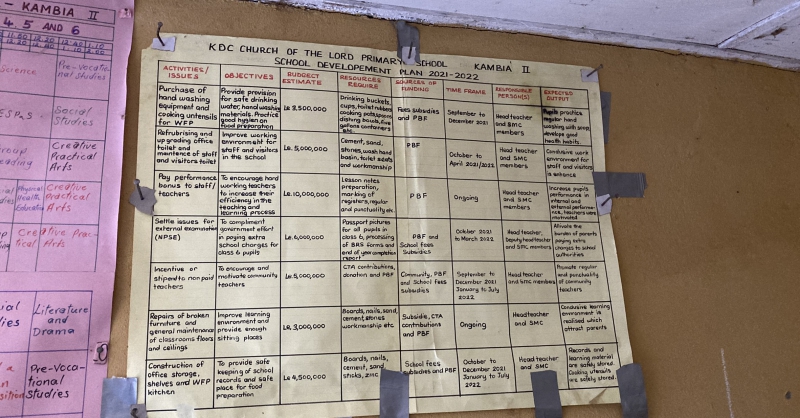 - KAMBIA II
4. 5 AND 6
Science
Pre-vocatio-
nal studies
Social
Studies
Creative
Practical
Arts
Physical
Health
Education
Creative
Practical
Arts
Creative Prac-
tical Arts
Literature
and
Drama
Pre-Voca-
tional
Studies
KDC CHURCH OF THE LORD PRIMARY SCHOOL KAMBIA II
SCHOOL DEVELOPEMENT PLAN 2021-2022
ACTIVITIES/
ISSUES
OBJECTIVES
BUDGET
ESTIMATE
RESOURCES
REQUIRE
SOURCES OF
FUNDING
TIME FRAME
RESPONSIBLE
PERSON(S)
EXPECTED
OUTPUT
Purchase of
hand washing
equipment and
cooking untensils
for WFP
Provide provision
for safe drinking
water, hand washing
materials. Practice
good hygien on
food preparation
Le 3,500,000
Drinking buckets,
cups, toilet rubbers
cooking pots, spoons
dishing bowls, five
gallons containers
etc.
Fees subsidies
and PBF
September to
December 2021
Head teacher
and SMC
members
Pupils practice
regular hand
washing with soap,
develope good
health habits.
Refrubrising and
upgrading office
toilet and
maintence of staff
and visitors toilet
Improve working
environment for
staff and visitors
in the school
Le 5,000,000
Cement, sand,
stones, wash hand
basin, toilet seats
and workmanship
PBF
October to
April 2021/2022
Head teacher
and SMC
members
Condusive work
environment for
staff and visitors
is enhance
Pay performance
bonus to staff/
teachers
To encourage hard
working teachers
to increase their
efficiency in the
teaching and
learning process
Le 10,000,000
Lesson notes
preparation,
marking of
registers, regular
and punctuality etc
PBF
Ongoing
Head teacher
and SMC
members
Increase pupils
performance in
internal and
external performa-
nce, teachers were
motivated
Settle issues for
external examination
(NPSE)
To compliment
government effort
in paying extra
school charges for
class 6 pupils
Le 6,000,000
Passport pictures
for all pupils in
class 6, processing
of BRS forms and
end of year completion
report
PBF and
School Fees
Subsidies
October 2021
to March 2022
Head teacher,
Deputy head teacher
and SMC members
Aliviate the
burden of parents
paying extra
charges to school
authorities
Incentive or
stiped to non paid
teachers
To encourage and
motivate community
teachers
Le 5,000,000
CTA contributions,
donation and PBF
Community, PBF
and School fees
subsidies
September to
December 2021
January to July
2022
Head teacher
and SMC members
Promote regular
and punctuality
of community
teachers
Repairs of broken
furniture and
general maintenance
of classrooms floors
and ceilings
Improve learning
environment and
provide enough
sitting places
Le 3,000,000
Boards, nails, sand,
cement, stones
workmanship etc
Subsidie, CTA
contributions
and PBF
Ongoing
Headteacher
and SMC
Condusive learning
environment is
realised which
attract parents
Construction of
office storage,
shelves and WFP
kitchen
To provide safe
keeping of school
records and safe
place for food
preparation
Le 4,500,000
Boards, nails,
cement, sand
sticks, zinc
School fees
subsidies and PBF
October to
December 2021
January to July
2022
Head teacher
and SMC
Records and
learning material
are safely stored.
Cooking utensils
are safely stored.